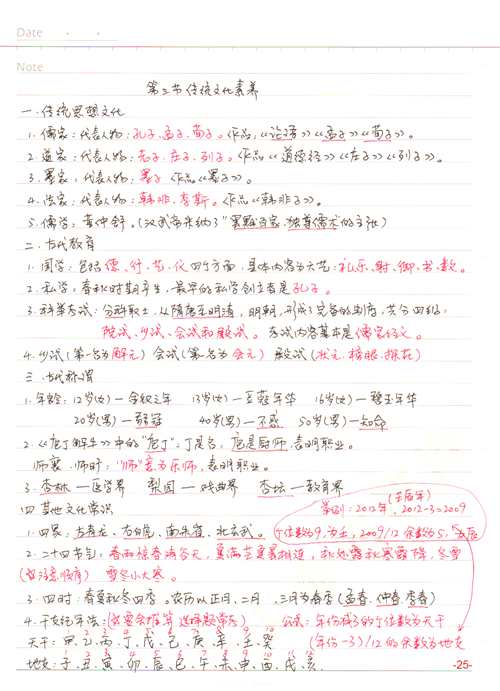 Date
Note
第二节 传统文化素养
一.传统思想文化
1.儒家:代表人物:孔子.孟子.荀子。作品:《论语》《孟子》《荀子》。
2.道家:代表人物:老子.庄子.列子。作品《道德经》《庄子》《列子》。
3.墨家:代表人物:墨子 作品《墨子》。
4.法家:代表人物:韩非.李斯。作品《韩非子》。
5.儒学:董仲舒。(汉武帝采纳了"罢黜百家.独尊儒术的主张)
二.古代教育
1.国学:包括德、行、艺、仪四个方面,具体内容为六艺:礼.乐.射.御.书.数。
2.私学:春秋时期产生,最早的私学创立者是孔子。
3.科举考试:分科取士,从隋唐至明清,明朝,形成了完备的制度,共分四级:
院试、乡试、会试和殿试。考试内容基本是儒家经义。
4.乡试(第一名为解元)会试(第一名为会元)殿试(状元.榜眼.探花)
三.古代称谓
1.年龄:12岁(女)—金钗之年 13岁(女)—豆蔻年华 16岁(女)—碧玉年华
20岁(男)—弱冠 40岁(男)—不惑 50岁(男)—知命
2.《庖丁解牛》中的"庖丁":丁是名,庖是厨师.表明职业。
师襄.师旷:"师"意为乐师,表明职业。
3.杏林—医学界 梨园—戏曲界 杏坛—教育界
四.其他文化常识
举例:2012年,2012-3=2009
1.四象:左青龙、右白虎、南朱雀、北玄武。
个位数为9,为壬,2009/12余数为5,为辰
2.二十四节气:春雨惊春清谷天,夏满芒夏暑相连,秋处露秋寒霜降,冬雪
雪冬小大寒。
3.四时:春夏秋冬四季。农历以正月、二月、三月为春季(孟春、仲春.季春)
4.干支纪年法: 公式:年份减3的个位数为天干
天干:甲.乙.丙.丁.戊.己.庚.辛.壬.癸
(年份-3)/12的余数为地支
地支:子.丑.寅.卯.辰.巳.午.未.申.酉.戌.亥.
-25-